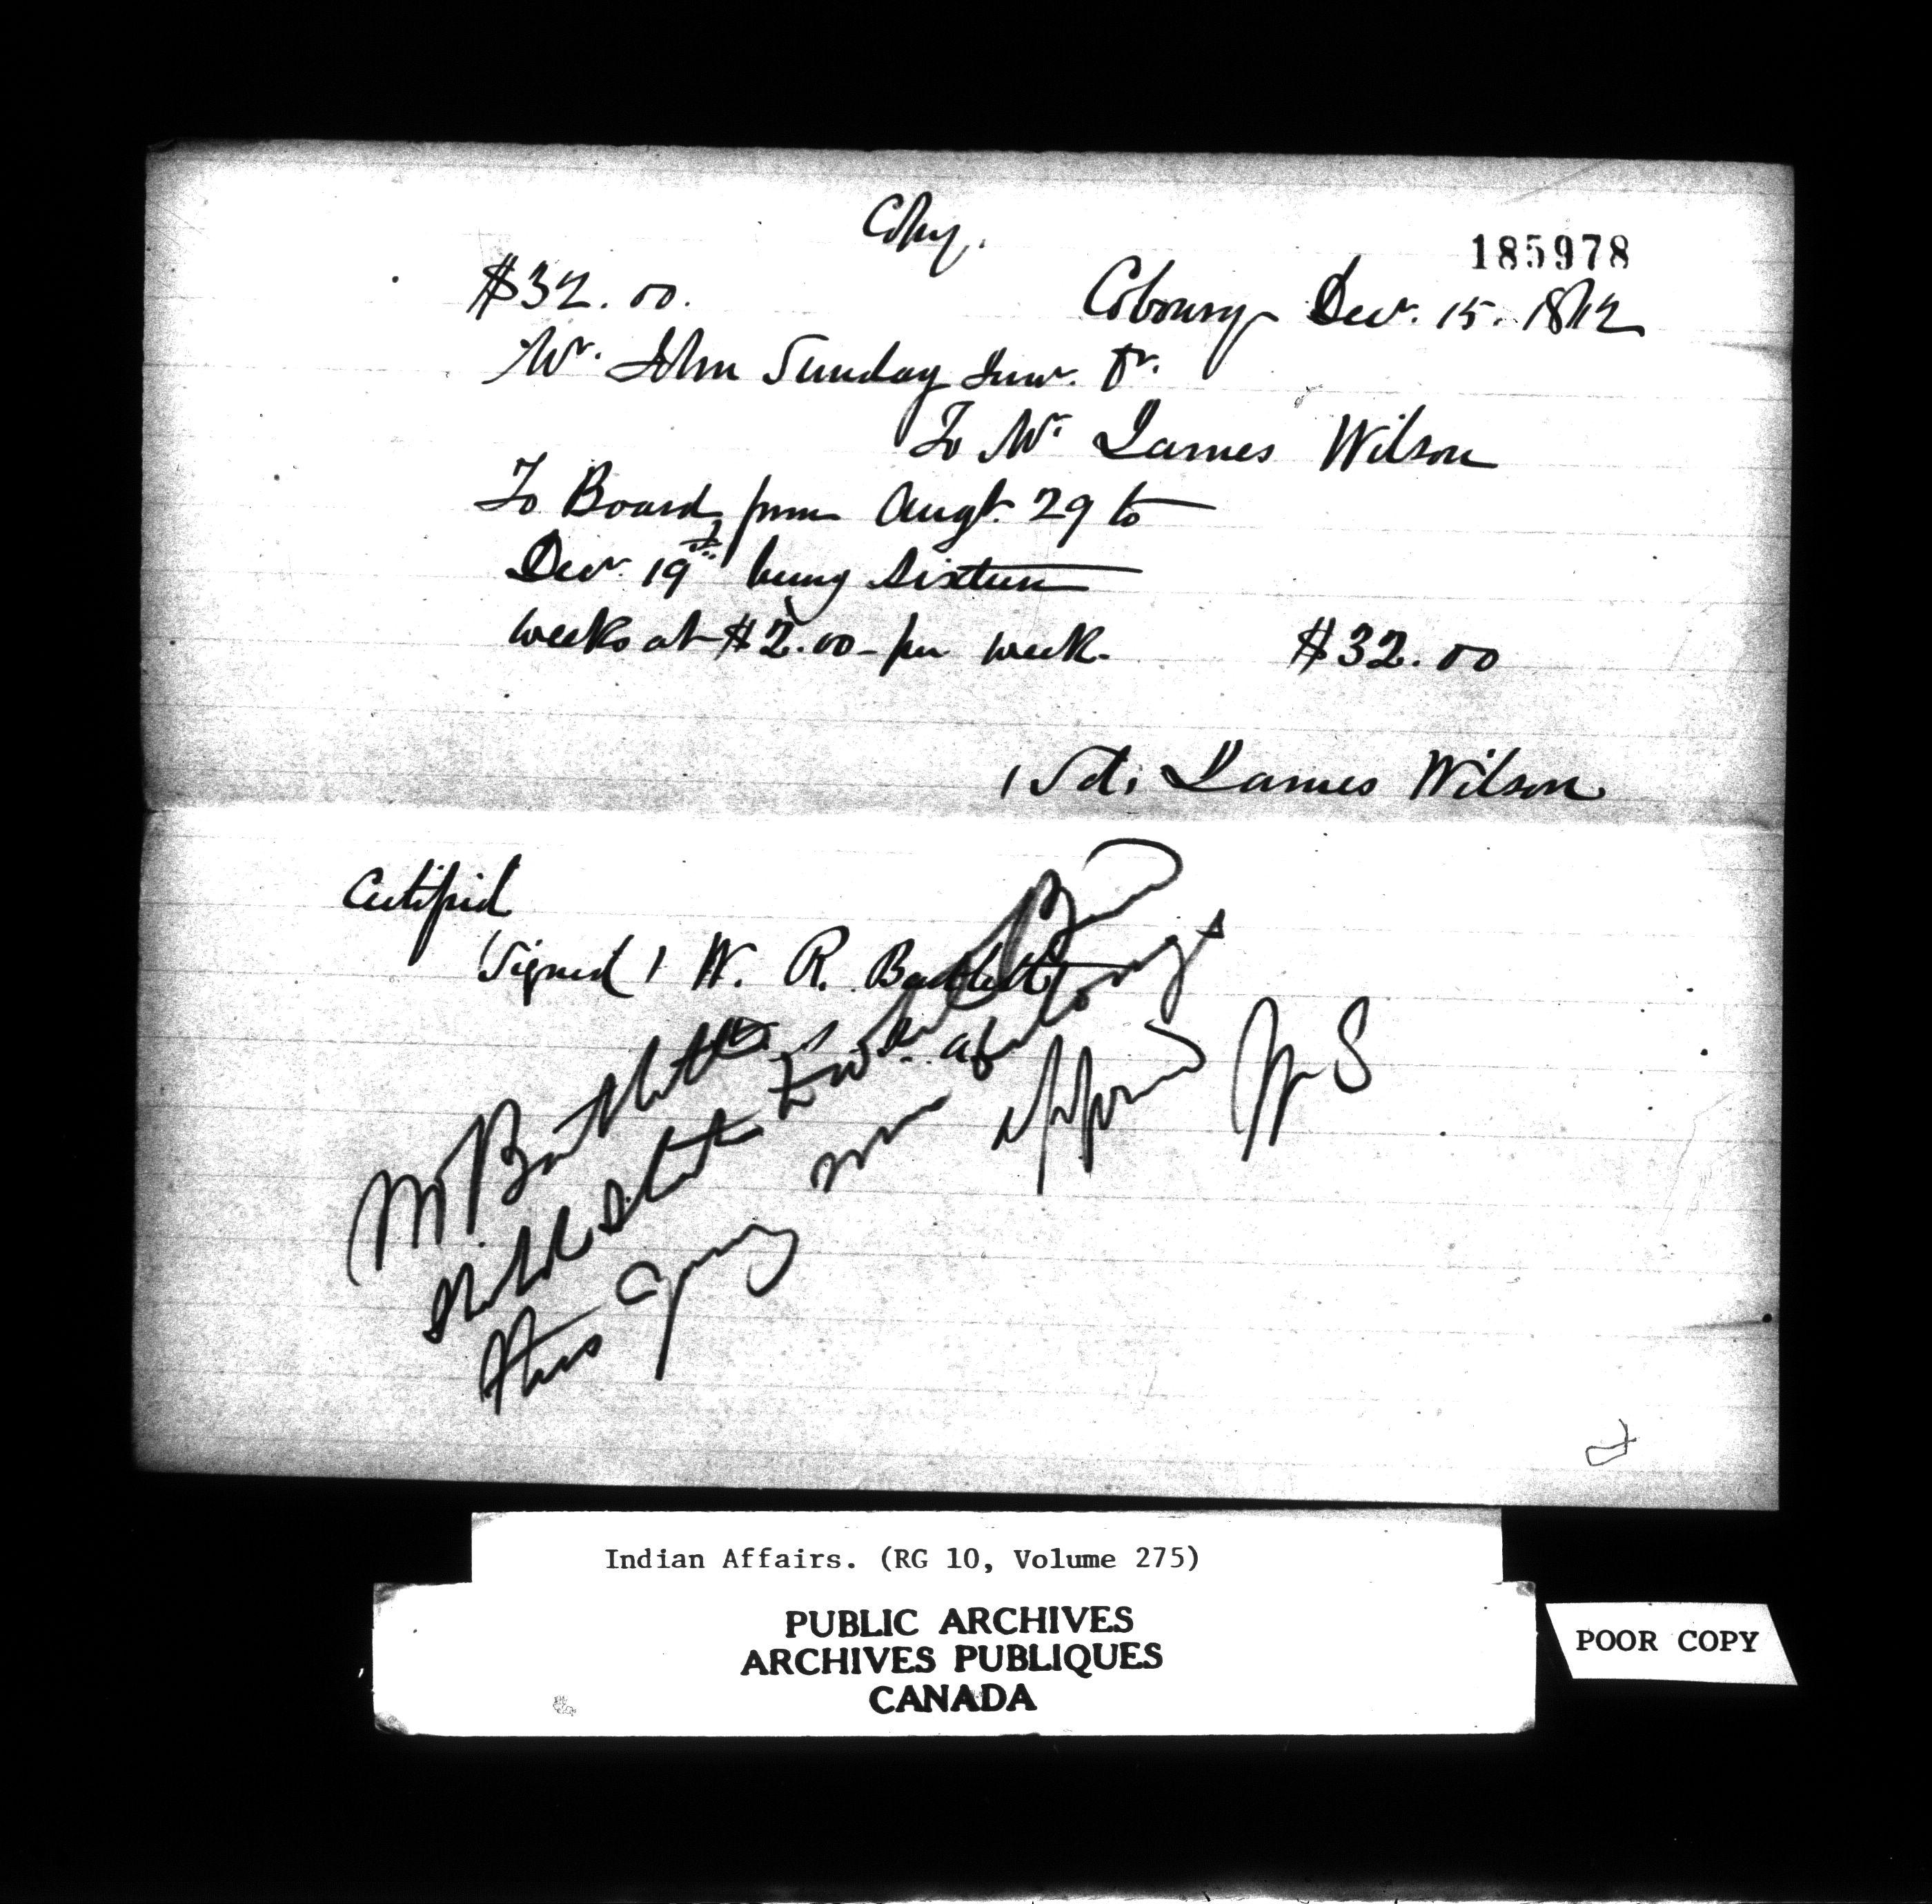 Copy.
185978
$32.00.
Cobourg Decr. 15. 1862
Mr. John Sunday Junr. Dr.
To Mr. James Wilson
To Board from Augt. 29 to
Decr. 19th being sixteen
weeks at $2.00 per week. $32.00
(Sd) James Wilson
Certified
(Signed) W. R. Bartlett
Mr Bartlett
should
this
Approved
WS
Indian Affairs. (RG 10, Volume 275)
PUBLIC ARCHIVES
ARCHIVES PUBLIQUES
CANADA
POOR COPY